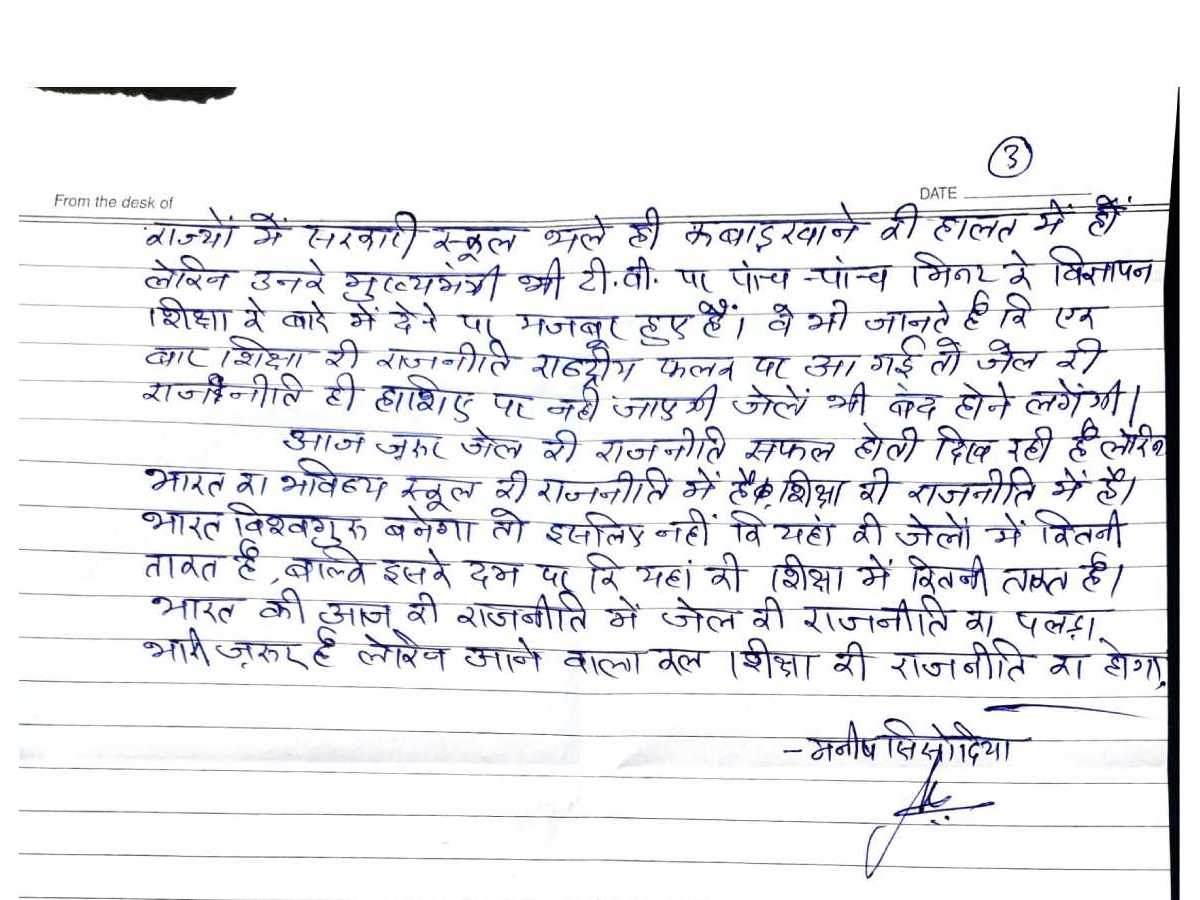 3
From the desk of
DATE
राज्यों में सरकारी स्कूल भले ही कबाड़खाने की हालत में हों
लेकिन उनके मुख्यमंत्री भी टी.वी. पर पांच-पांच मिनट के विज्ञापन
शिक्षा के बारे में देने पर मजबूर हुए हैं। वे भी जानते हैं कि एक
बार शिक्षा की राजनीति राष्ट्रीय फलक पर आ गई तो जेल की
राजनीति ही हाशिए पर नहीं जाएगी जेलें भी बंद होने लगेंगी।
आज ज़रूर जेल की राजनीति सफल होती दिख रही है लेकिन
भारत का भविष्य स्कूल की राजनीति में है, शिक्षा की राजनीति में है।
भारत विश्वगुरु बनेगा तो इसलिए नहीं कि यहां की जेलों में कितनी
ताकत है, बल्कि इसके दम पर कि यहां की शिक्षा में कितनी ताकत है।
भारत की आज की राजनीति में जेल की राजनीति का पलड़ा
भारी ज़रूर है लेकिन आने वाला कल शिक्षा की राजनीति का होगा,
-मनीष सिसोदिया